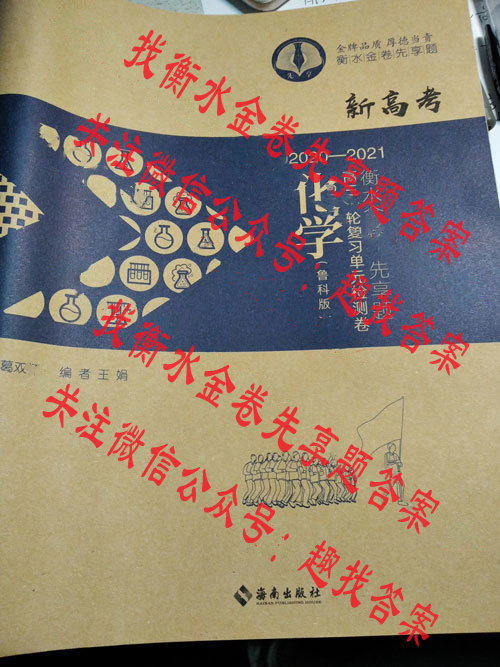 金牌品质 厚德当青
衡水金卷先享题
先享
新高考
2020—2021
化学
(鲁科版)
轮复习单元检测卷
先享题
葛双
编者王娟
海南出版社
HAINAN PUBLISHING HOUSE
找衡水金卷先享题答案
关注微信公众号:趣找答案
找衡水金卷先享题答案
关注微信公众号:趣找答案